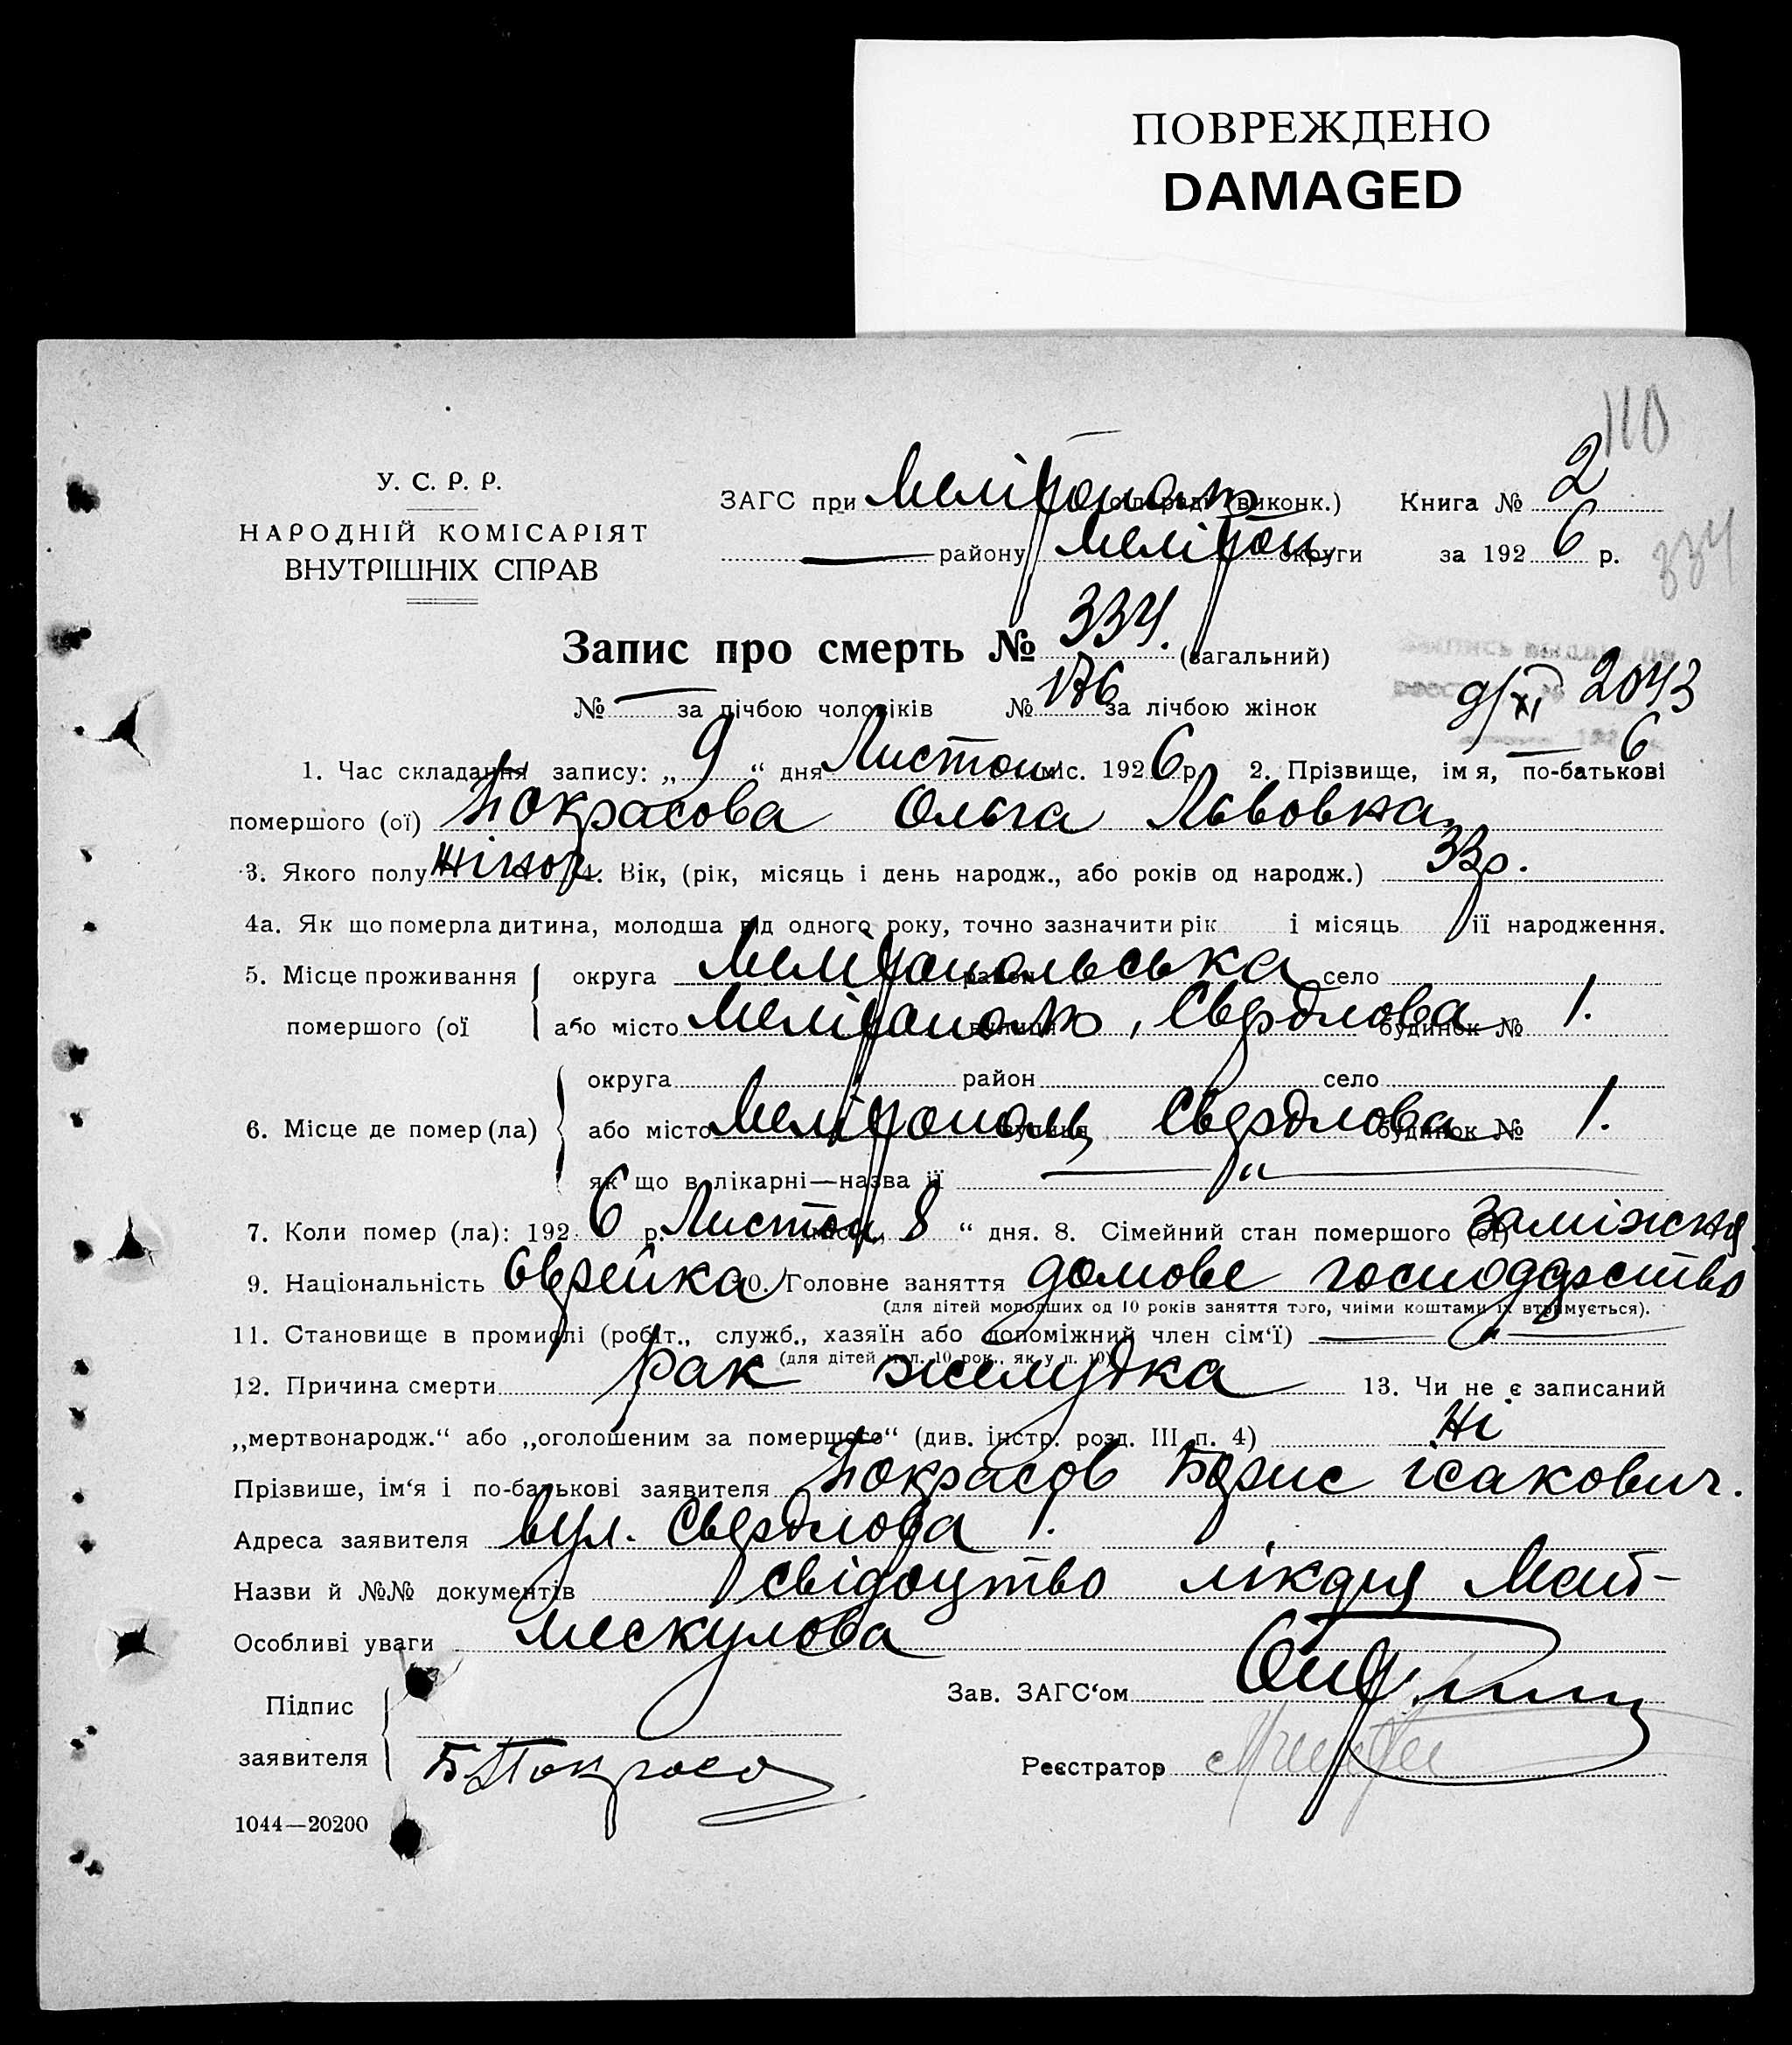 ПОВРЕЖДЕНО
DAMAGED
110
У. С. Р. Р.
НАРОДНІЙ КОМІСАРІЯТ
ВНУТРІШНІХ СПРАВ
ЗАГС при Мелітополь (виконк.) Книга № 2
— району Меліtoп округи за 1926 р.
334
Запис про смерть № 334. (загальний)
№ — за лічбою чоловіків № 176 за лічбою жінок
9/XI 2043
6
1. Час складання запису: „ 9 “ дня Листоп міс. 1926 р. 2. Прізвище, імя, по-батькові
помершого (ої) Покрасова Ольга Львовна
3. Якого полу жіноч 4. Вік, (рік, місяць і день народж., або років од народж.) 33 р.
4а. Як що померла дитина, молодша від одного року, точно зазначити рік і місяць її народження.
5. Місце проживання помершого (ої округа Мелітопольська район село
або місто Мелітополь, вулиця Свердлова будинок № 1.
округа район село
6. Місце де помер (ла) або місто Мелітополь вулиця Свердлова будинок № 1.
як що в лікарні—назва її — „ —
7. Коли помер (ла): 1926 р. Листоп місяц „ 8 “ дня. 8. Сімейний стан помершого (ої) Заміжня
9. Національність Єврейка 10. Головне заняття домове господарство
(для дітей молодших од 10 років заняття того, чиїми коштами їх втримується).
11. Становище в промислі (робіт., служб., хазяїн або допоміжний член сім‘ї) — „ —
(для дітей мол. 10 рок., як у п. 10)
12. Причина смерти рак желудка 13. Чи не є записаний
„мертвонародж.“ або „оголошеним за помершого“ (див. інстр. розд. III п. 4) Ні
Прізвише, ім‘я і по-батькові заявителя Покрасов Борис Ісакович.
Адреса заявителя вул. Свердлова 1.
Назви й №№ документів свідоцтво лікаря
Особливі уваги
Підпис
заявителя Б Покрасов
Зав. ЗАГС‘ом
Реєстратор
1044—20200